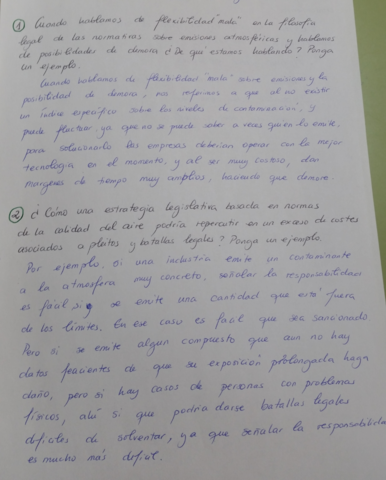 ① Cuando hablamos de flexibilidad "mala" en la filosofía
legal de las normativas sobre emisiones atmosféricas y hablamos
de posibilidades de demora ¿De qué estamos hablando? Ponga
un ejemplo.
Cuando hablamos de flexibilidad "mala" sobre emisiones y la
posibilidad de demora, nos referimos a que al no existir
un índice específico sobre los niveles de contaminación, y
puede fluctuar, ya que no se puede saber a veces quien lo emite.
para solucionarlo las empresas deberían operar con la mejor
tecnología en el momento, y al ser muy costoso, dan
margenes de tiempo muy amplios, haciendo que demore.
② ¿Cómo una estrategia legislativa basada en normas
de la calidad del aire podría repercutir en un exceso de costes
asociados a pleitos y batallas legales? Ponga un ejemplo.
Por ejemplo, si una industria emite un contaminante
a la atmosfera muy concreto, señalar la responsabilidad
es facil, si se emite una cantidad que está fuera
de los límites. En ese caso es facil que sea sancionado
Pero si se emite algun compuesto que aun no hay
datos feacientes de que su exposición prolongada haga
daño, pero si hay casos de personas con problemas
físicos, ahí si que podria darse batallas legales
dificiles de solventar, ya que señalar la responsabilidad
es mucho más dificil.